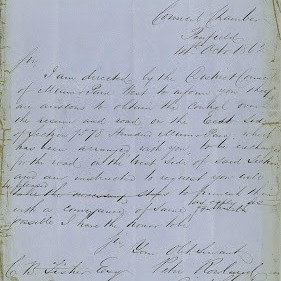 Council Chamber
Penfield
14th Oct 1862
Sir
I am directed by the District Council
of Munno Para West to inform you they
are anxious to obtain the control over
the reserve and road on the East Side
of Section Hundred Munno Para, which
has been arranged with you, to be exchanged
for the road, on the West Side of said Section
and am instructed to request you will
be pleased
the necessary steps to furnish the
with a conveyance of same as
possible I have the honor to be
Sir
Your Obt Servant
C B Fisher Esq Peter